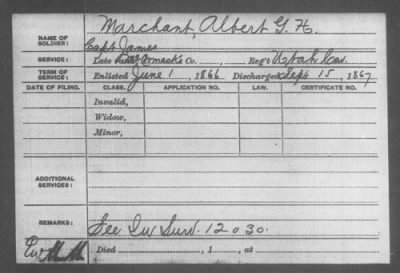 NAME OF SOLDIER: Marchant, Albert G. H.
Capt James
SERVICE: Late Co., Reg't Utah Cav.
TERM OF SERVICE: Enlisted June 1, 1866 Discharged Sept 15, 1867
DATE OF FILING. CLASS. APPLICATION NO. LAW. CERTIFICATE NO.
Invalid,
Widow,
Minor,
ADDITIONAL SERVICES:
REMARKS: See Ind Surv. 12030.
Died , 1 , at